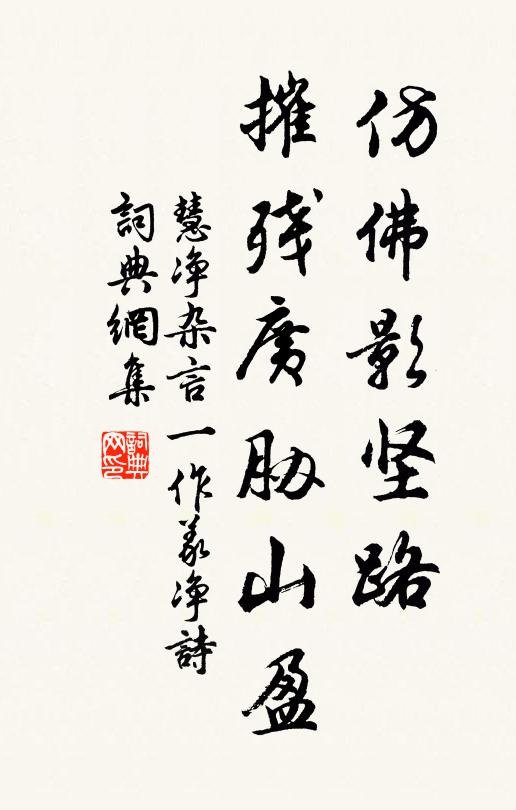 仿佛影坚路
摧残廣胁山盈
慧净杂言一作義净詩
詞典網集
詞典
网印